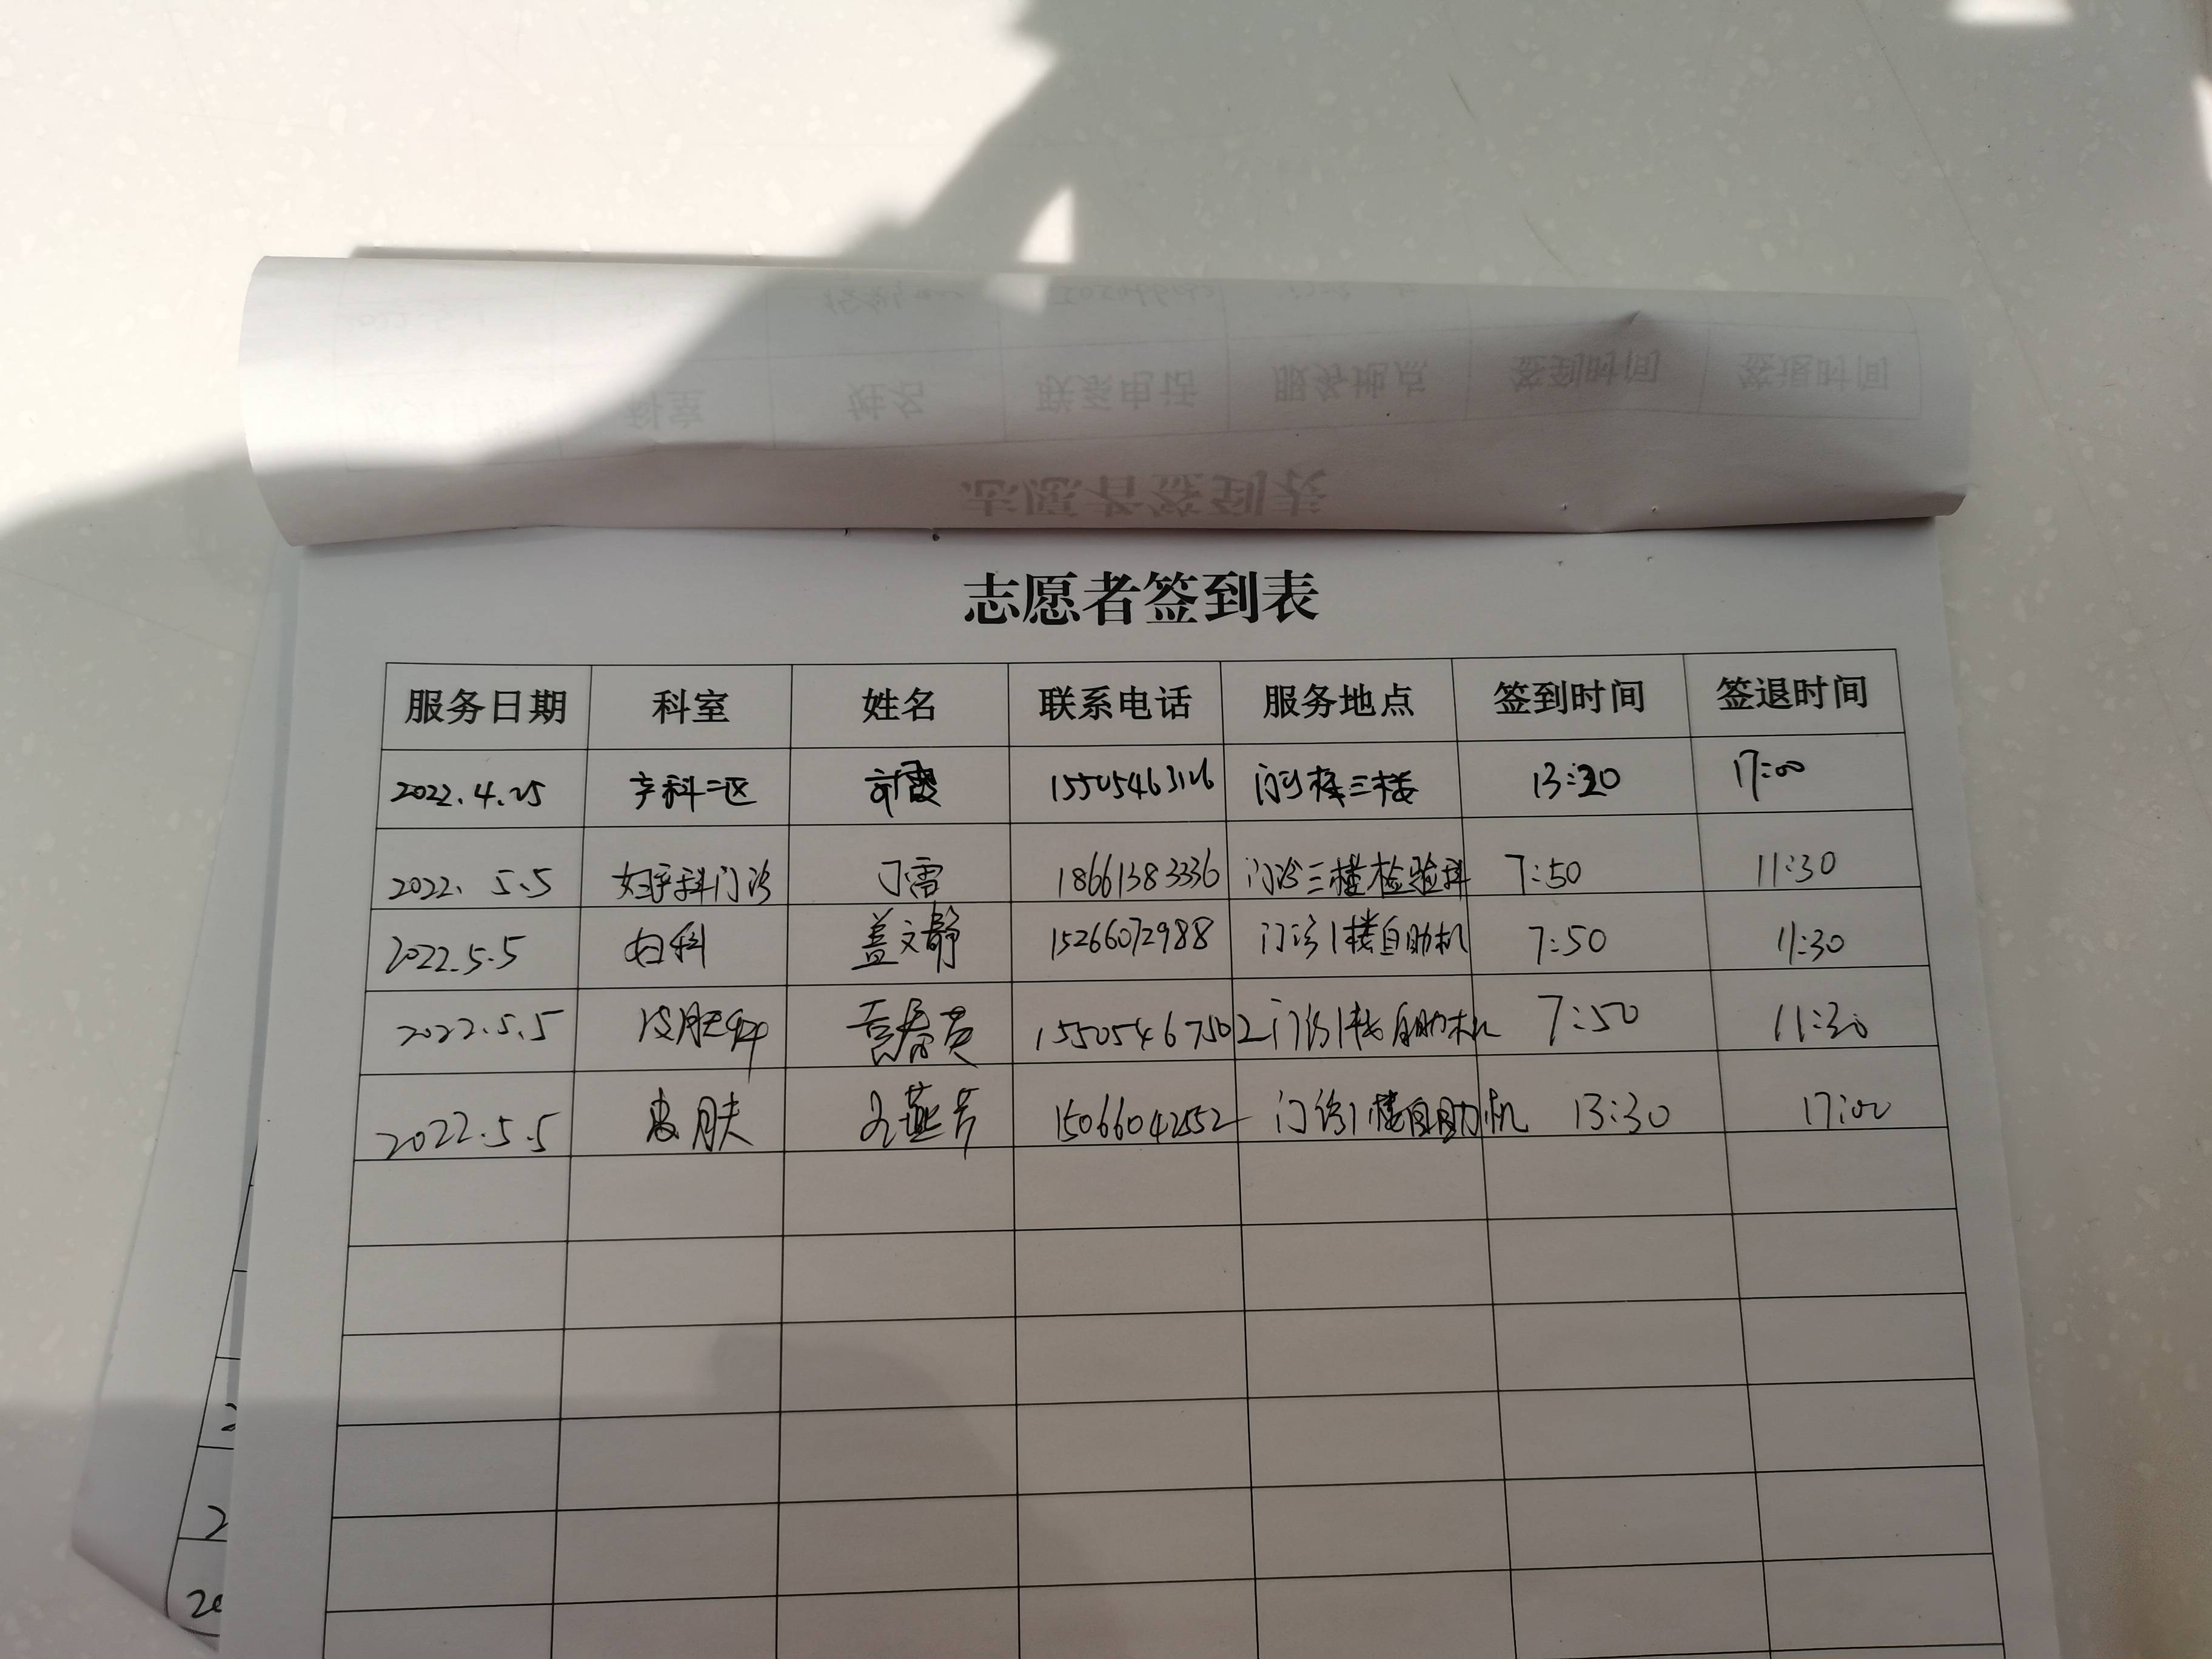 志愿者签到表
服务日期 科室 姓名 联系电话 服务地点 签到时间 签退时间
2022.4.25 产科二区 刘霞 15505463126 门诊楼三楼 13:20 17:00
2022.5.5 妇产科门诊 丁雷 18661383336 门诊三楼检验科 7:50 11:30
2022.5.5 妇科 盖文静 15266072988 门诊1楼自助机 7:50 11:30
2022.5.5 皮肤科 15505467502 门诊1楼自助机 7:50 11:30
2022.5.5 皮肤 燕芳 15066042552 门诊1楼自助机 13:30 17:00